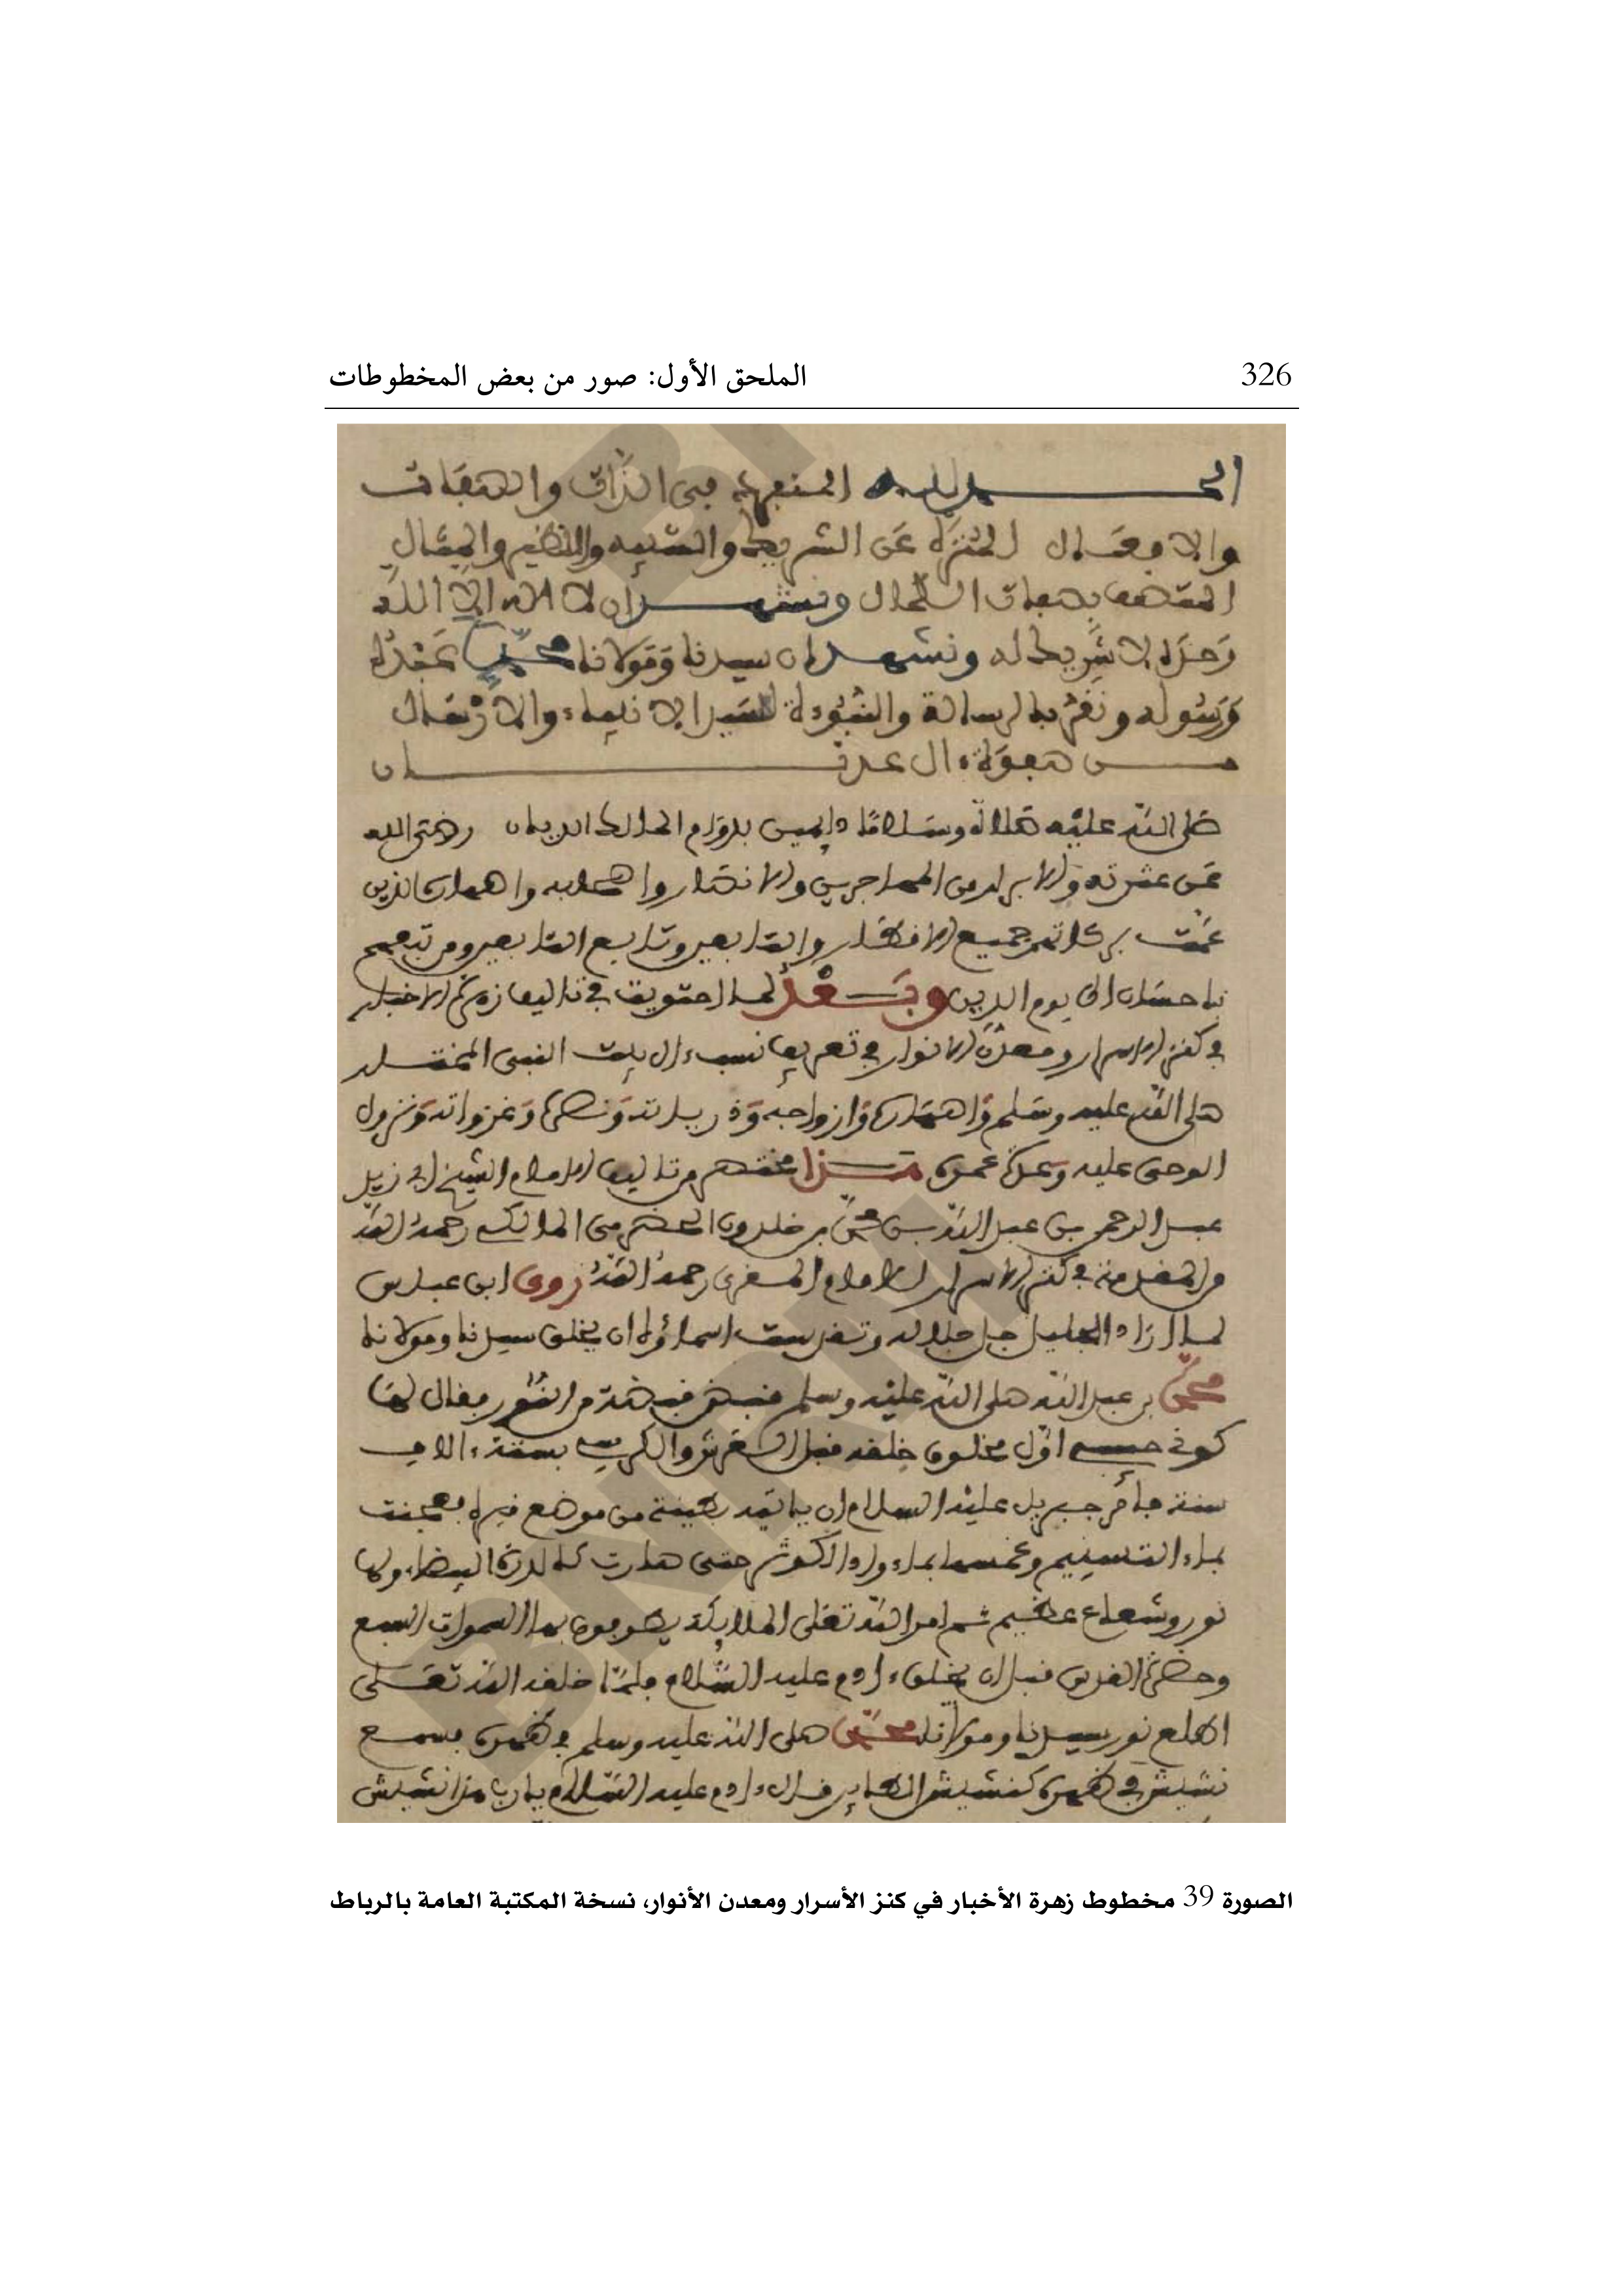 326 الملحق الأول: صور من بعض المخطوطات
الحمد لله المنفرد في الذات والصفات
والافعال المنزه عن الشريك والشبيه والنظير والمثال
المتصف بصفات الكمال ونشهد ان لا اله الا الله
وحده لا شريك له ونشهد ان سيدنا ومولانا محمدا عبده
ورسوله ونقر بالرسالة والنبوءة لسيد الانبياء والارسال
من صفوة ءال عدنان
صلى الله عليه صلاة وسلاما دايمين بدوام المالك الديان ورضي الله
عن عترته والابرار من المهاجرين والانصار واصحابه واصهاره الذين
عمت بركاتهم جميع الاقطار والتابعين وتابع التابعين ومن تبعهم
باحسان الى يوم الدين وبعد لما احتويت في تاليف زهرة الاخبار
في كنز الاسرار ومعدن الانوار في تعريف نسب ءال بيت النبي المختار
صلى الله عليه وسلم واصهاره وازواجه وذريته ونصرة وغزواته ونزول
الوحي عليه وعدة عمره هذا مختصر من تاليف الامام الشيخ ابي زيد
عبد الرحمن بن عبد الله بن محمد بن خلدون الحضرمي المالكي رحمه الله
في كنز الاسرار للامام المغربي رحمه الله روى ابن عباس
لما اراد الجليل جل جلاله وتقدست اسماؤه ان يخلق سيدنا ومولانا
محمد بن عبد الله صلى الله عليه وسلم فبض فبضة من النور بفال لها
كوني حبيبي اول مخلوق خلقه فبل العرش والكرسي بستة ءالاف
سنة فأمر جبريل عليه السلام ان ياتيه بطينة من موضع فبره بعجنت
بماء التسنيم وغمسها بماء واد الكوثر حتى صارت كالدرة البيضاء ولها
نور وشعاع عظيم ثم امر الله تعلى الملايكة يطوفون بها السموات السبع
وحضرة الفدس فبل ان يخلق ءادم عليه السلام فلما خلفه الله تعلى
اطلع نور سيدنا ومولانا محمد صلى الله عليه وسلم في ظهره يسمع
نشيش في ظهره كنشيش الطاير فال ءادم عليه السلام يارب ما هذا النشيش
الصورة 39 مخطوط زهرة الأخبار في كنز الأسرار ومعدن الأنوار، نسخة المكتبة العامة بالرباط